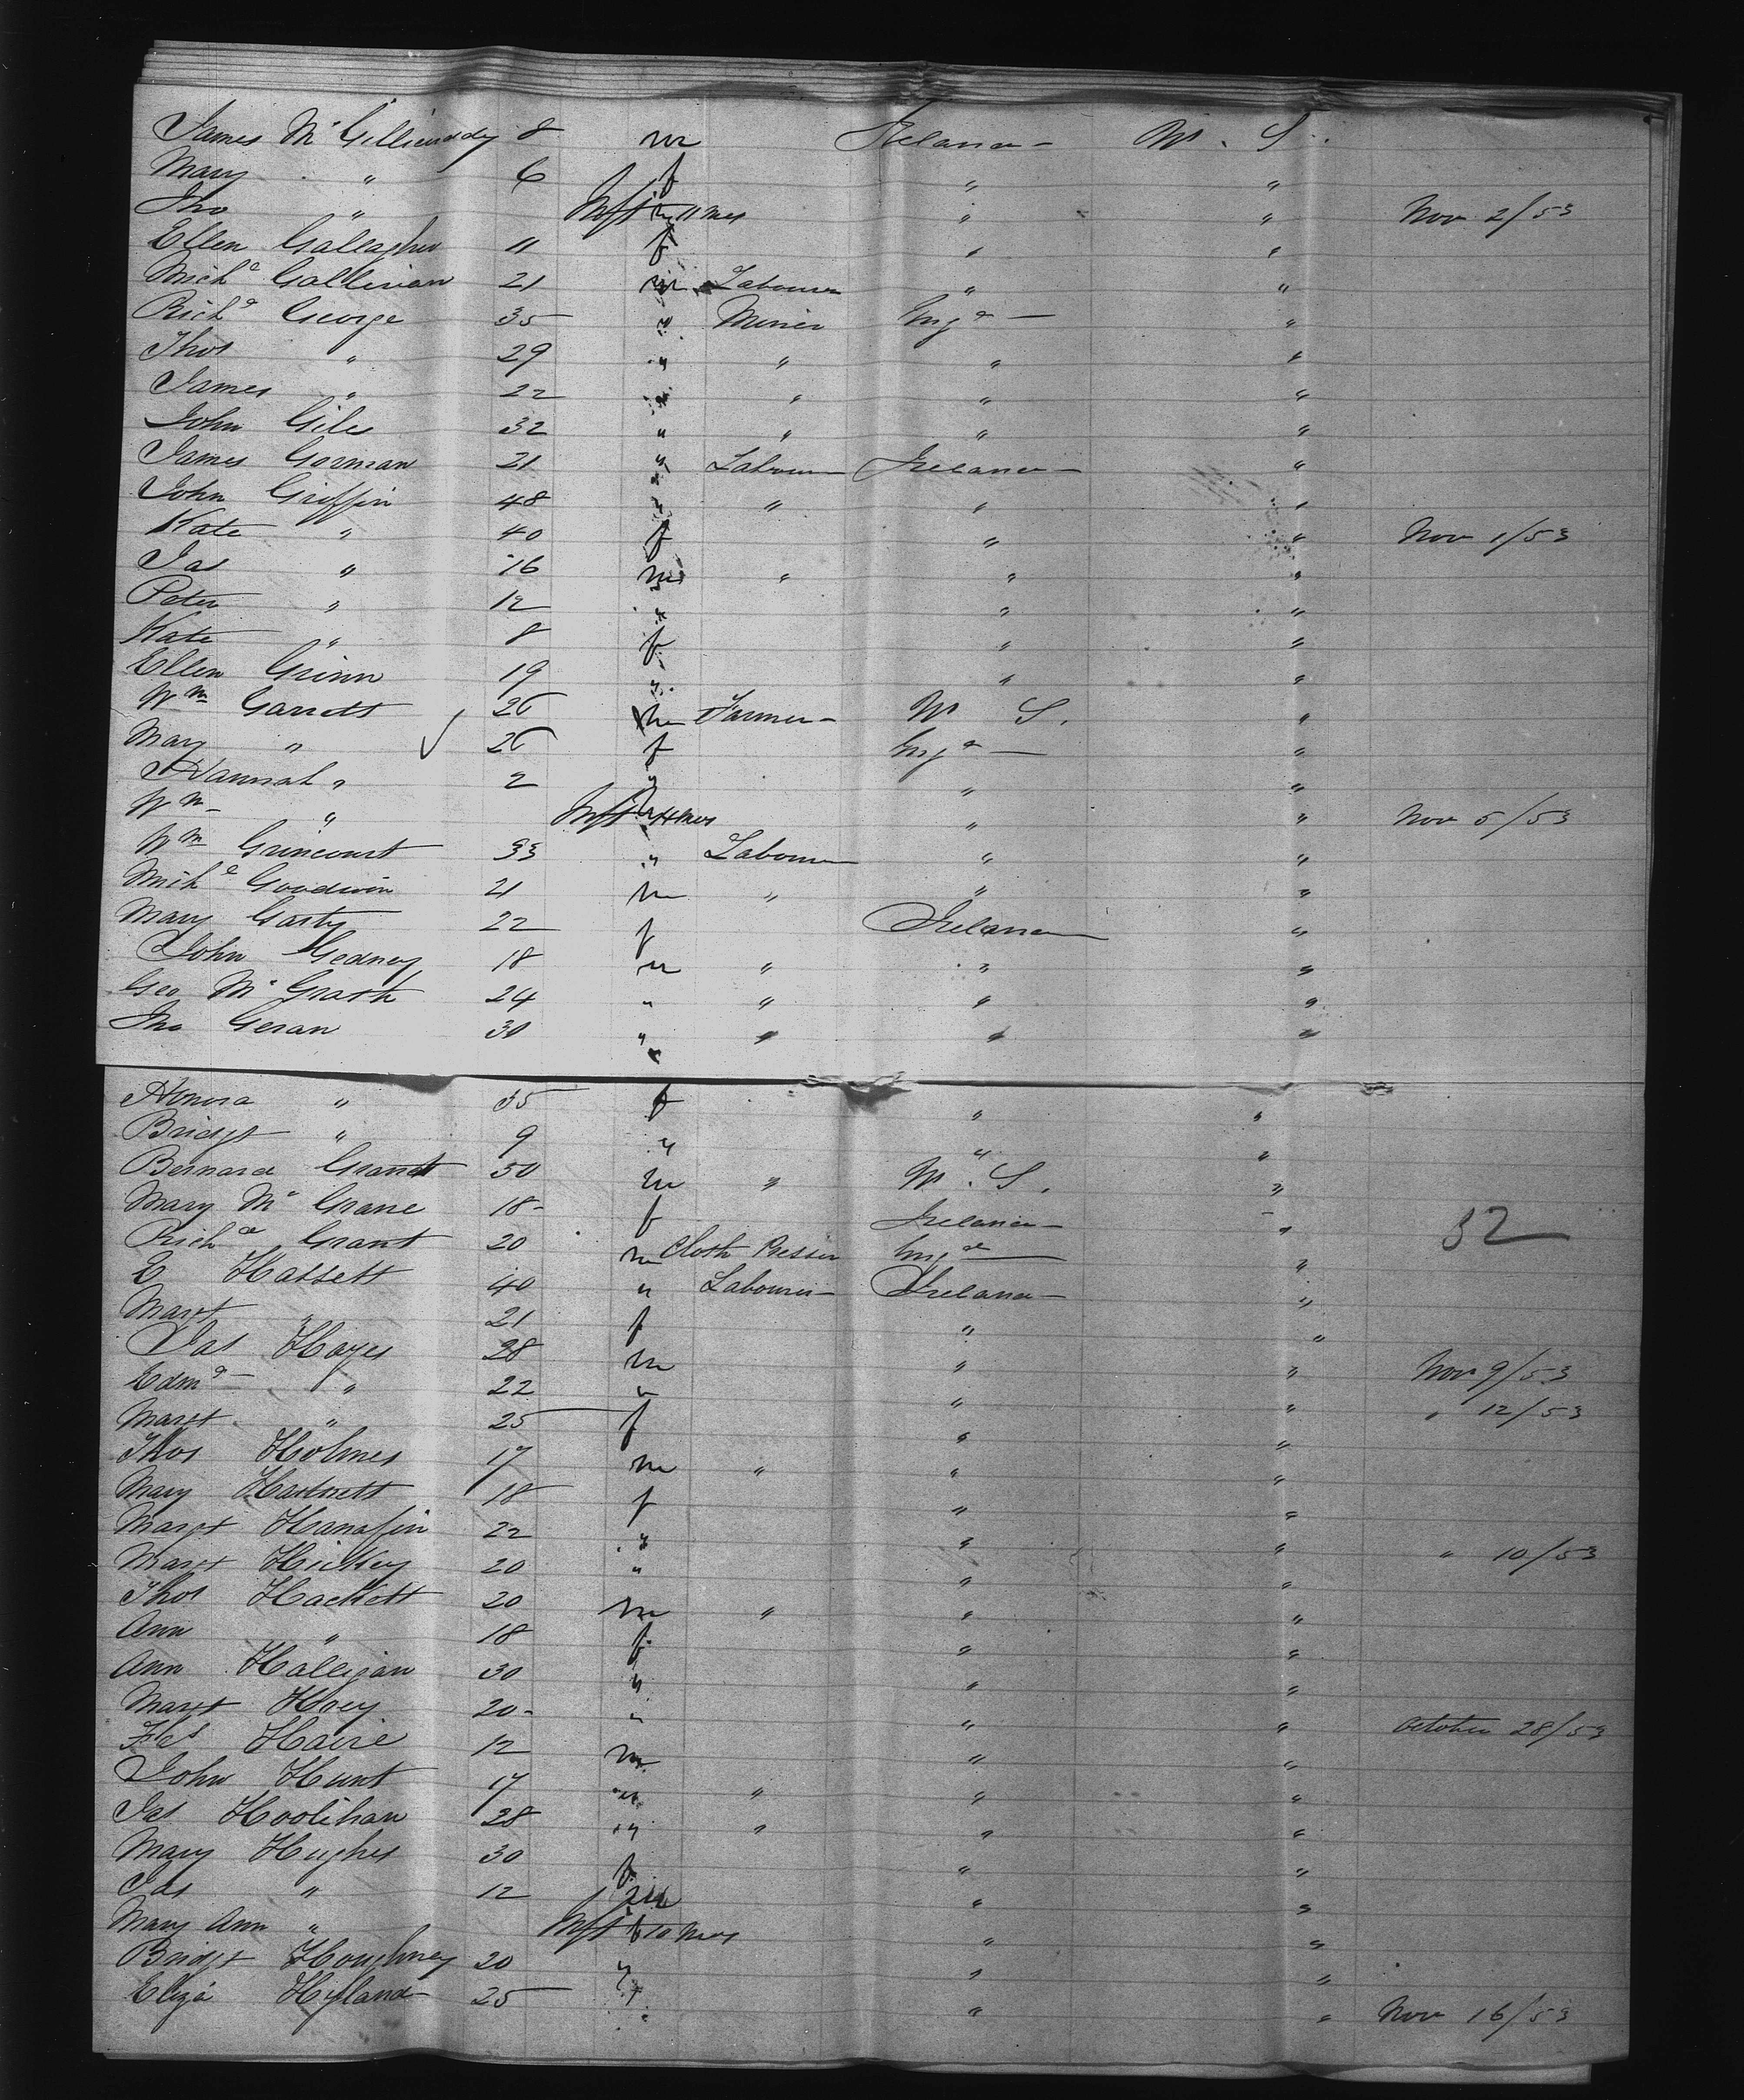 James Mc Gillicuddy 8 m Ireland - U. S.
Mary " 6 f " "
Jno " Inft m 11 mos " " Nov 2/53
Ellen Gallagher 11 f " "
Michl Gallivan 21 m Labourer " "
Richd George 35 " Miner Engd - "
Thos " 29 " " " "
James " 22 " " " "
John Giles 32 " " " "
James Gorman 21 " Labourer Ireland "
John Griffin 48 " " " "
Kate " 40 f " " Nov 1/53
Jas " 16 m " " "
Peter " 12 " " "
Kate " 8 f " "
Ellen Grinn 19 " " "
Wm Garrett 26 m Farmer - U S. "
Mary " 26 f Engd - "
Hannah " 2 " " "
Wm " Inft 11 mos " " Nov 5/53
Wm Grincourt 33 " Labourer " "
Michl Goodwin 21 m " " "
Mary Garty 22 f Ireland "
John Gedney 18 m " " "
Geo Mc Grath 24 " " " "
Jno Geran 30 " " " "
Honora " 35 f " "
Bridgt " 9 " " "
Bernard Grant 50 m " U. S. "
Mary Mc Grane 18 - f Ireland - "
32
Richd Grant 20 m Cloth Presser Engd "
E Hassett 40 " Labourer - Ireland - "
Margt " 21 f " "
Jas Hayes 28 m " " Nov 9/53
Edmd " 22 " " " " 12/53
Margt " 25 f " "
Thos Holmes 17 m " " "
Mary Hartnett 18 f " "
Margt Hanafin 22 " " " " 10/53
Margt Hickey 20 " " "
Thos Hackett 20 m " " "
Ann " 18 f " "
Ann Halligan 30 " " "
Margt Hoey 20 - " " " October 28/53
Haire 12 m " "
John Hunt 17 " " " "
Jas Hoolihan 28 " " " "
Mary Hughes 30 f " "
Jas " 12 m " "
Mary Ann " Inft f 10 mos " "
Bridgt Houghney 20 " " "
Eliza Hyland 25 " " " Nov 16/53